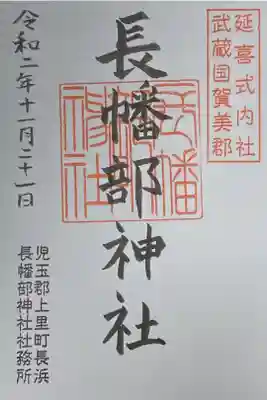 延喜式内社
武蔵国賀美郡
長幡部神社
長幡神社
令和二年十一月二十一日
児玉郡上里町長浜
長幡部神社社務所